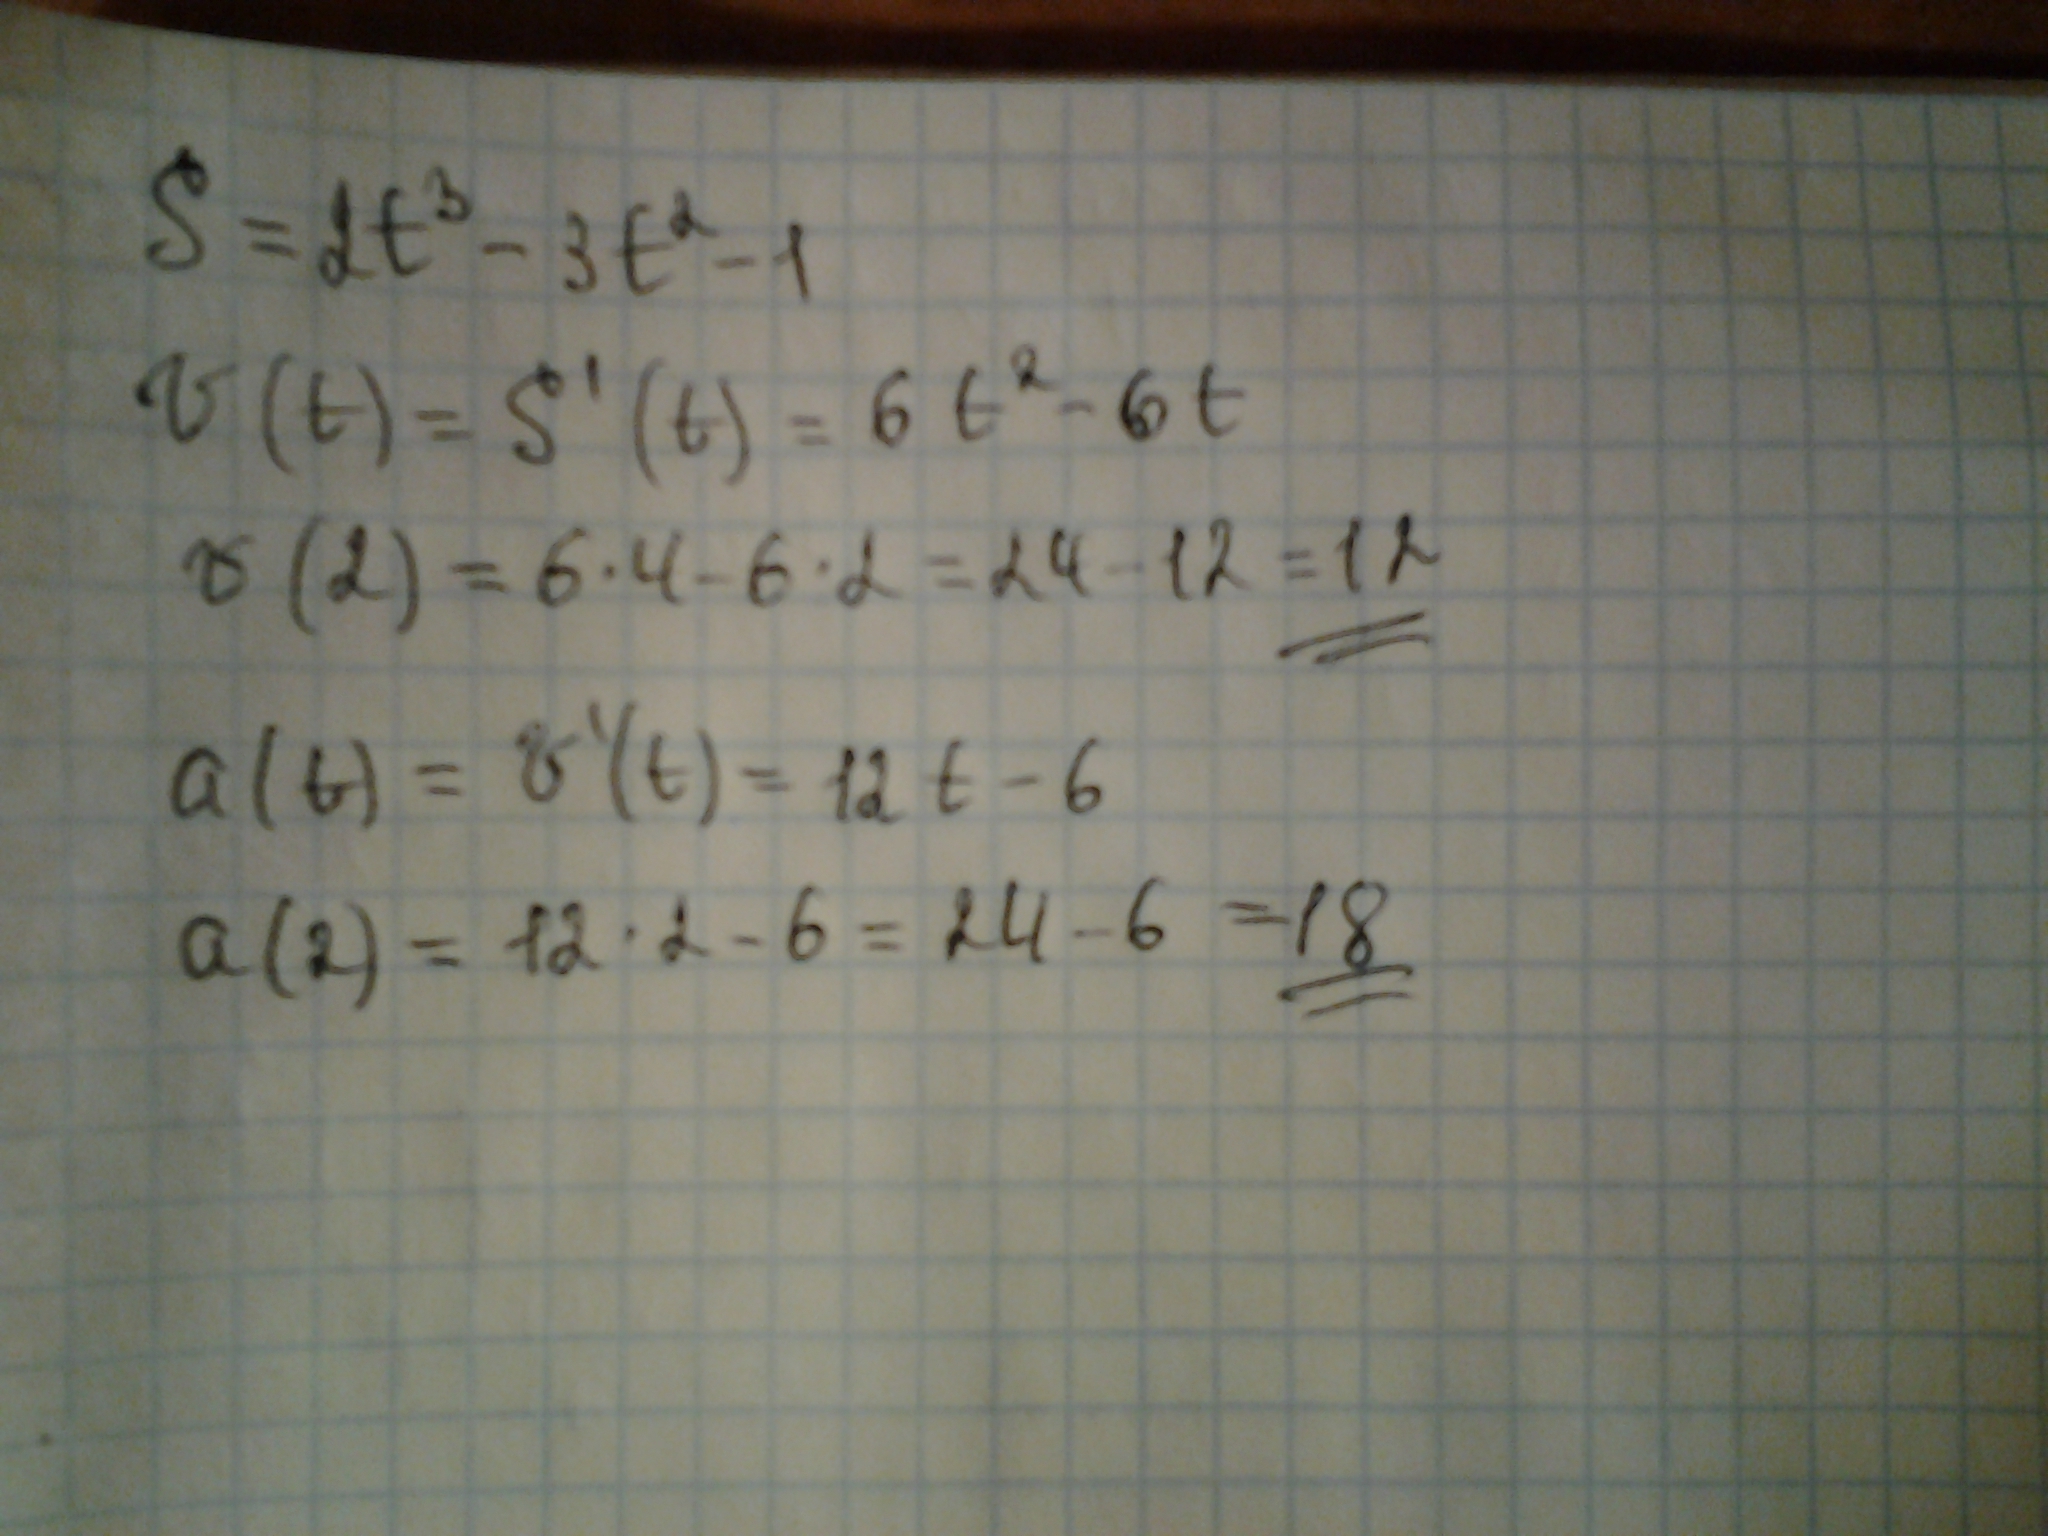 S = 2t³ - 3t² - 1
v(t) = S'(t) = 6t² - 6t
v(2) = 6·4 - 6·2 = 24 - 12 = 12
a(t) = v'(t) = 12t - 6
a(2) = 12·2 - 6 = 24 - 6 = 18